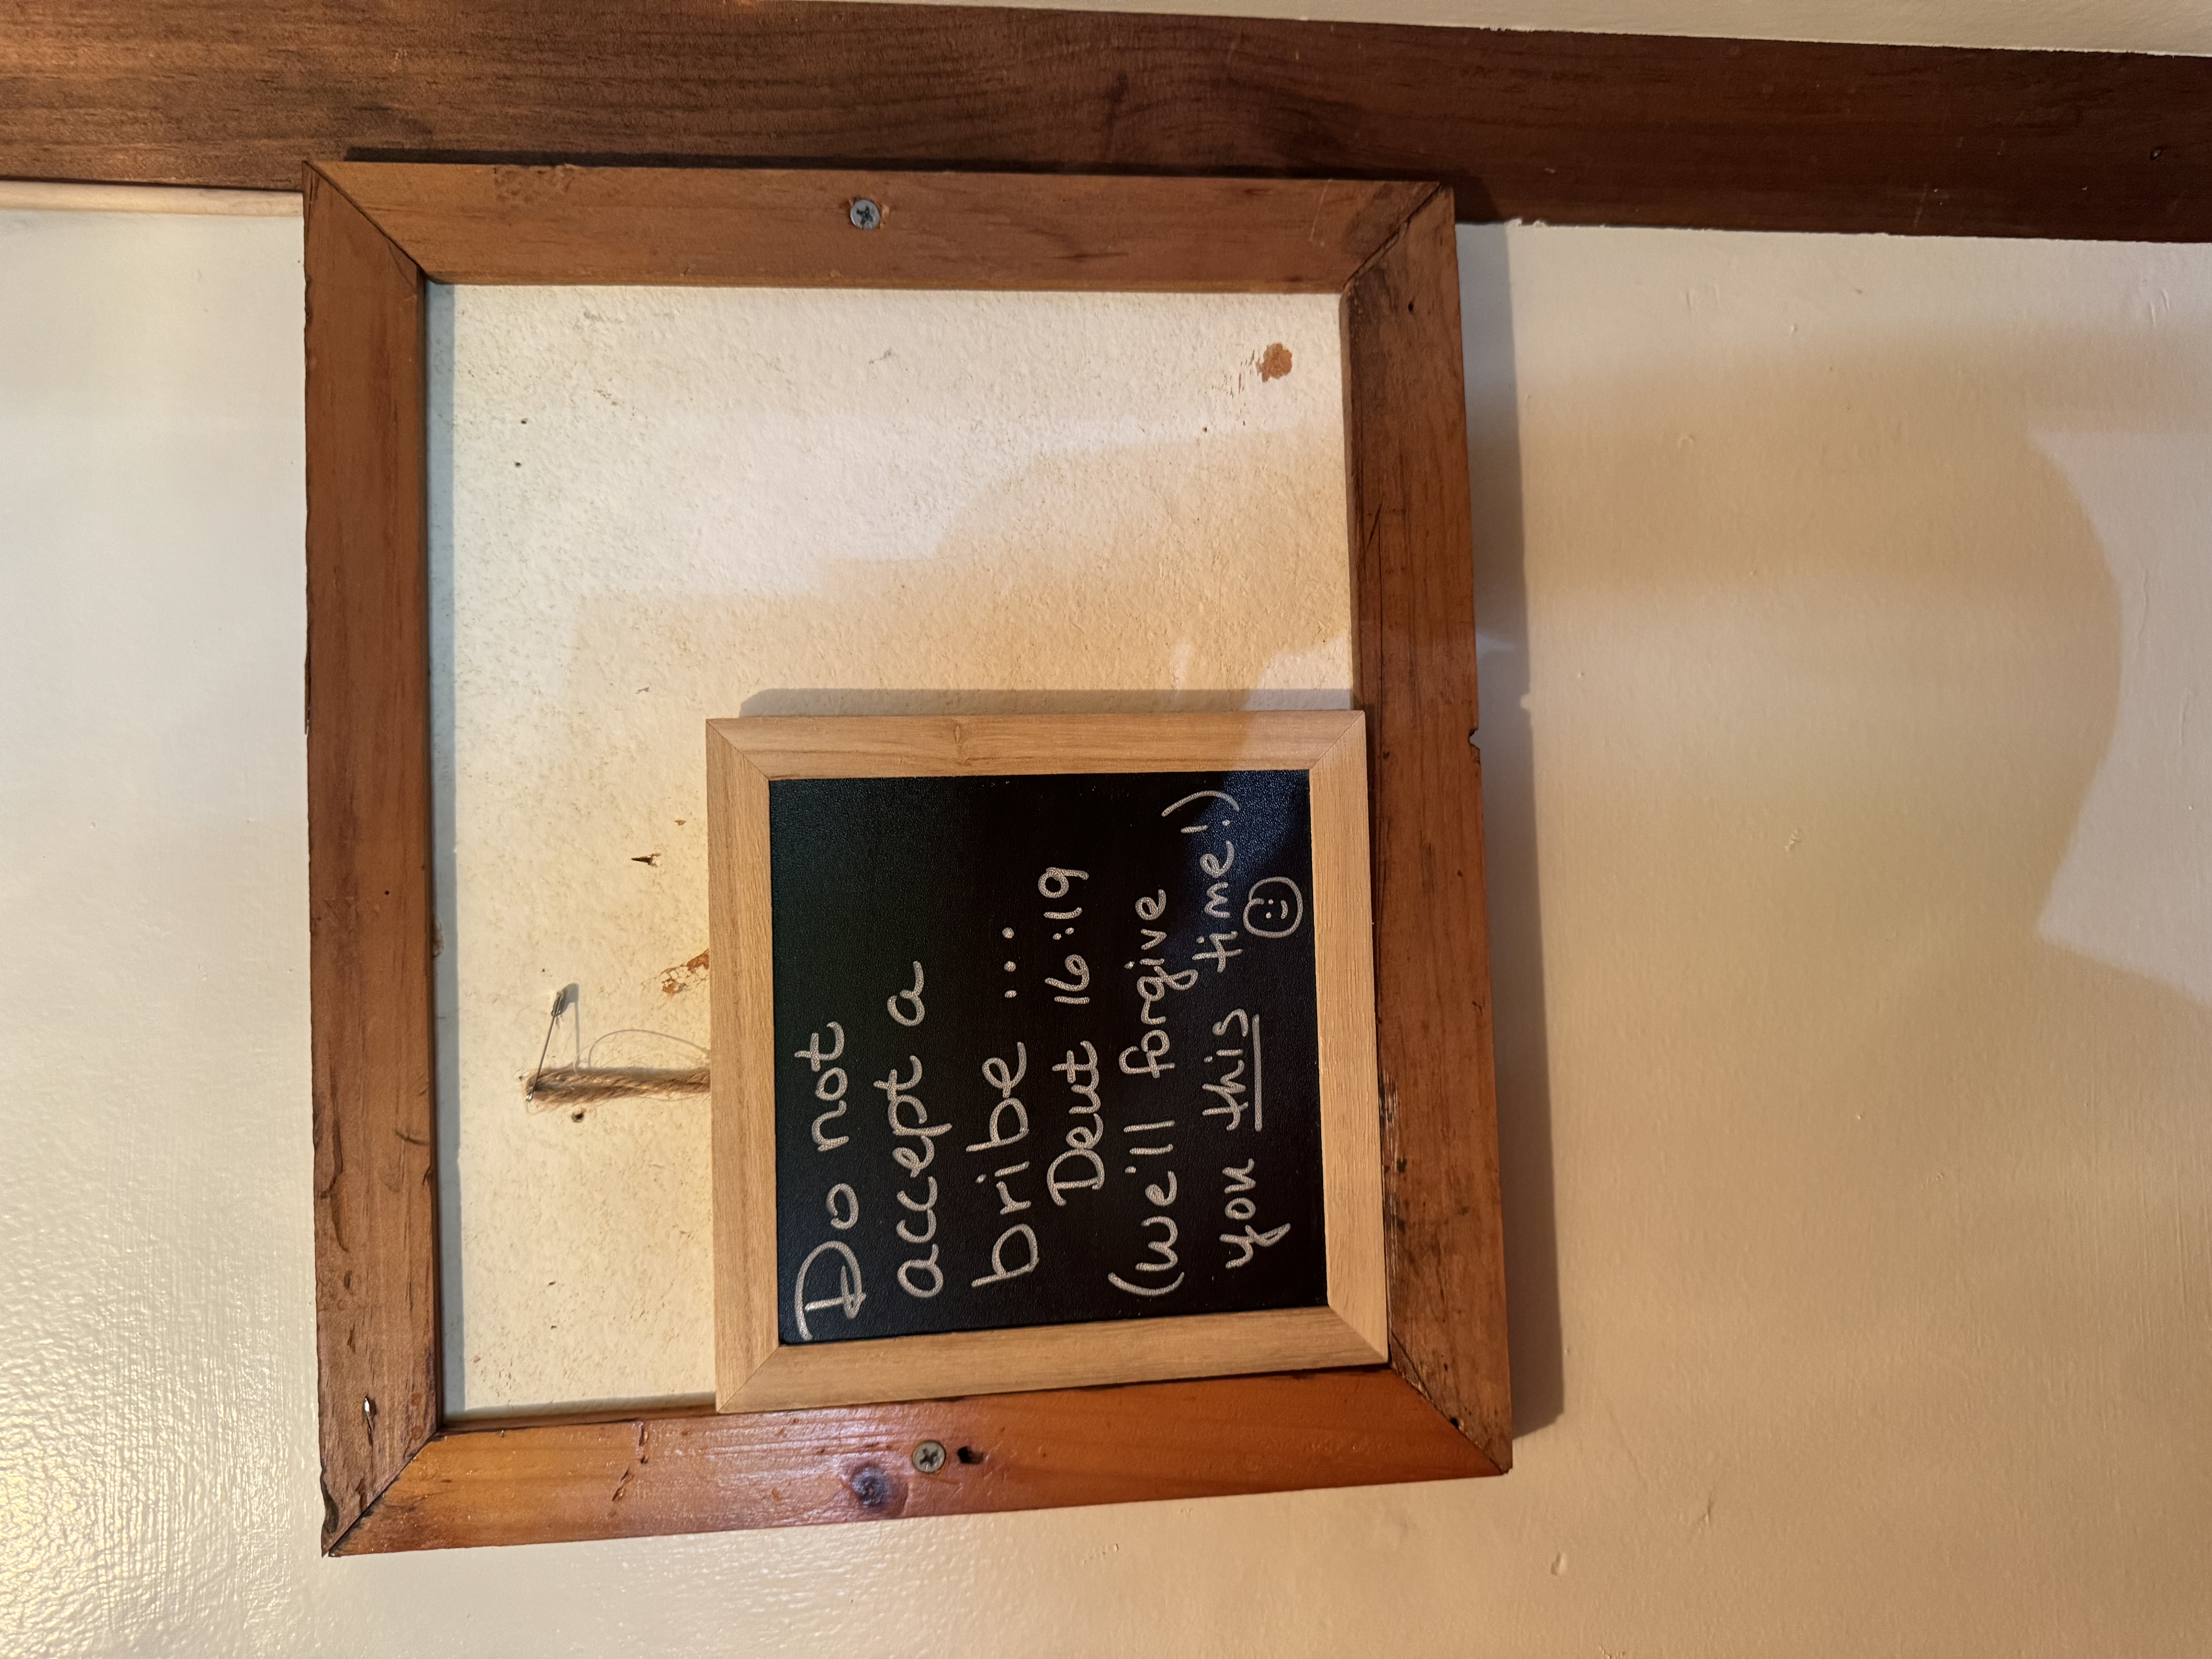 Do not
accept a
bribe ...
Deut 16:19
(we'll forgive
you this time!)